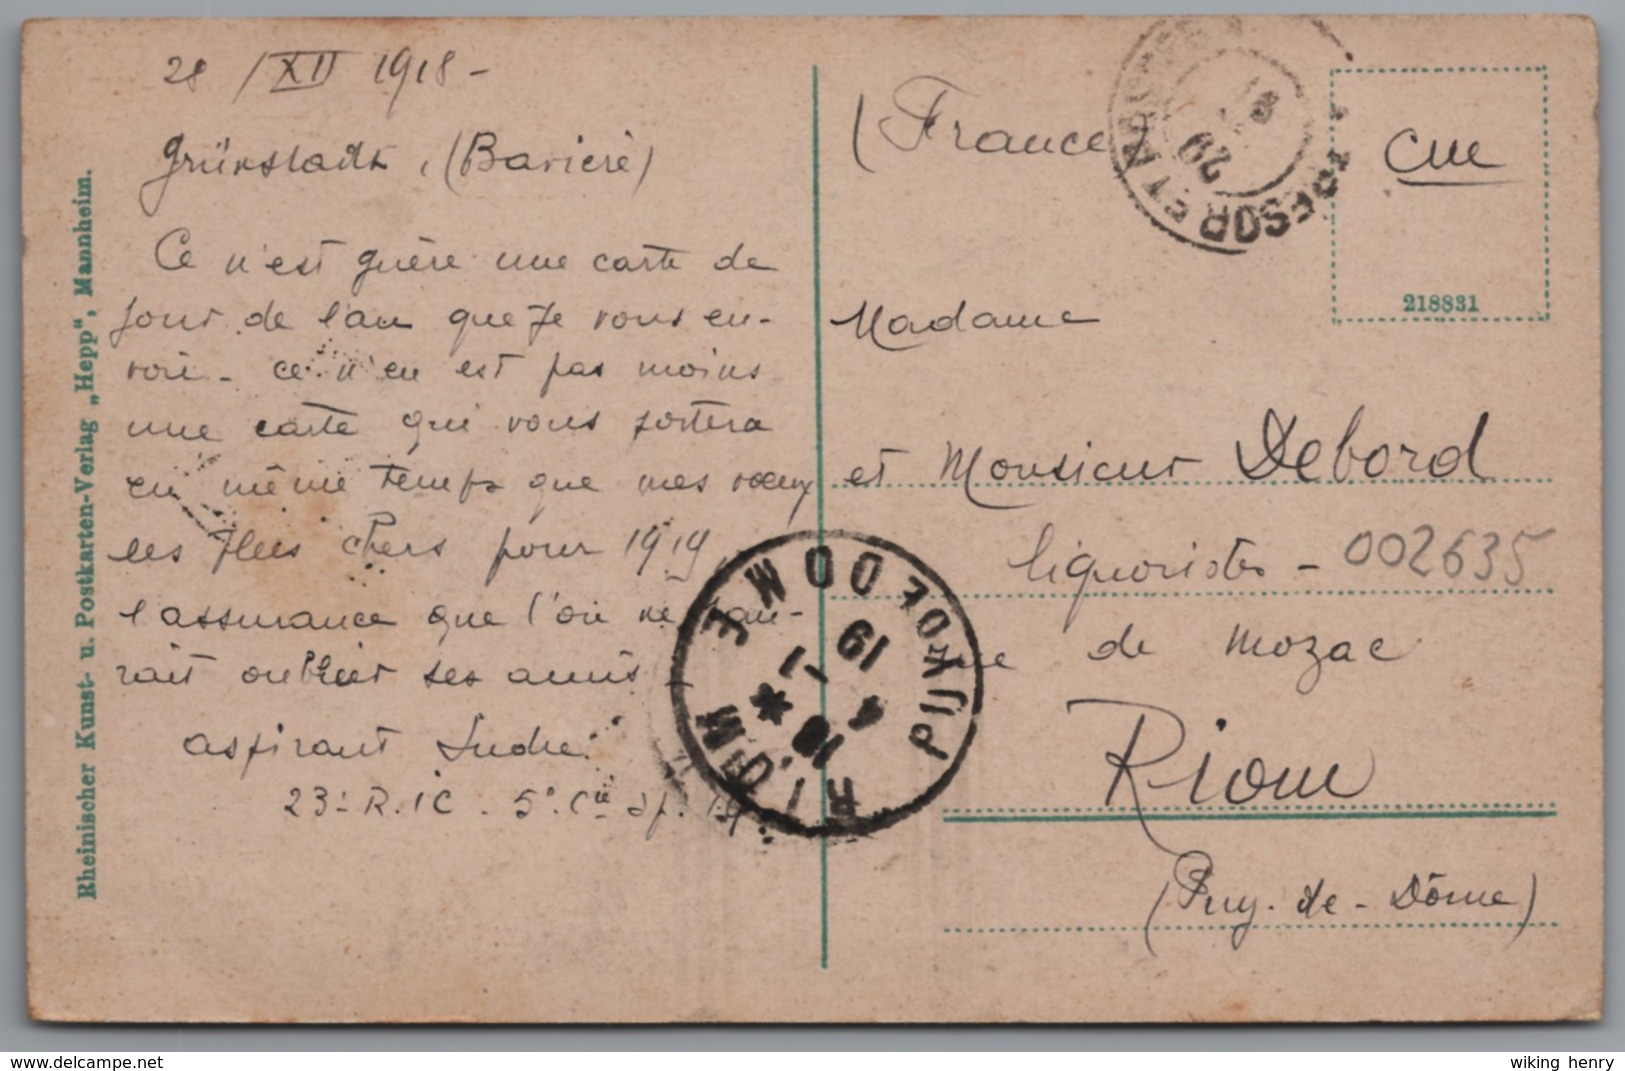 28 / XII 1918 -
Grünstadt, (Bavière)
Ce n'est guère une carte de
jour de l'an que je vous en-
voie - ce n'en est pas moins
une carte qui vous portera
en même temps que mes vœux
les plus chers pour 1919,
l'assurance que l'on ne sau-
rait oublier ses amis -
aspirant Sudre
23e R.I.C. 5e Cie
(France)
TRESOR ET
29
CM
218831
Madame
et Monsieur Debord
liquoristes - 002635
rue de Mozac
Riom
(Puy-de-Dôme)
RIOM
PUY DE DOME
4 -1
19
Rheinischer Kunst- u. Postkarten-Verlag „Hepp“, Mannheim.
www.delcampe.net
wiking henry